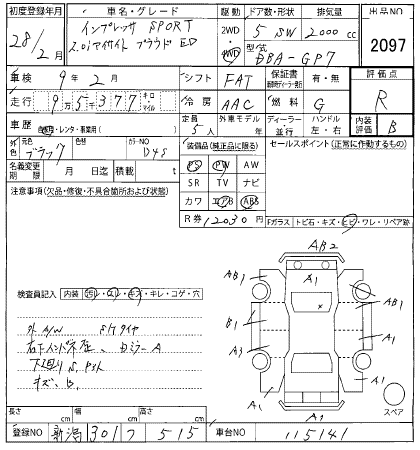 初度登録年月 車名・グレード 駆動 ドア数・形状 排気量 出品NO
28/2月 インプレッサ SPORT 2WD 5 SW 2000cc
2.0i アイサイト プラウド ED 4WD 型式 DBA-GP7 2097
車検 9年2月 シフト FAT 保証書 有・無 評価点
走行 9万5千377 キロ・マイル 冷房 AAC 燃料 G R
車歴 自家用・レンタ・事業用( ) 定員 5人 外車モデル 年 ディーラー・並行 ハンドル 左・右 内装評価 B
外色 元色 ブラック 色替 カラーNO D4S 装備品(純正品に限る) セールスポイント(正常に作動するもの)
名義変更期限 月 日 積載 t PS PW AW
SR TV ナビ
注意事項(欠品・修復・不具合箇所および状態) カワ エアB ABS
R券 12030円 Fガラス トビ石・キズ・ヒビ・ワレ・リペア跡
AB2
AB1 A1 AB1
B1 A1
A3
A1 A1
A1
スペア
検査員記入 内装 汚レ・スレ・キズ・キレ・コゲ・穴
外A/W
キズ、B.
長さ cm 幅 cm 高さ cm
登録NO 新潟 301 フ 515 車台NO 115141